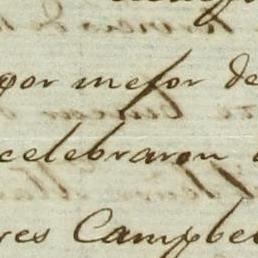 por mejor de
celebraron
res Campbel